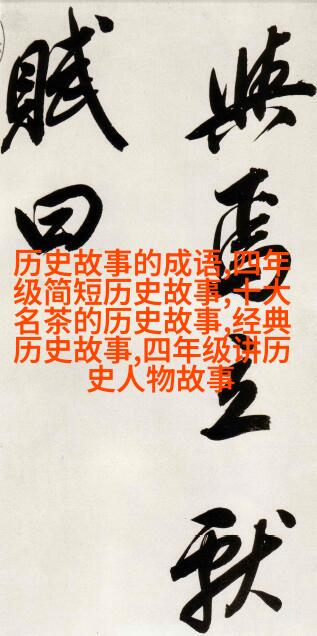 與焉立獻
賦曰
历史故事的成语,四年
级简短历史故事,十大
名茶的历史故事,经典
历史故事,四年级讲历
史人物故事